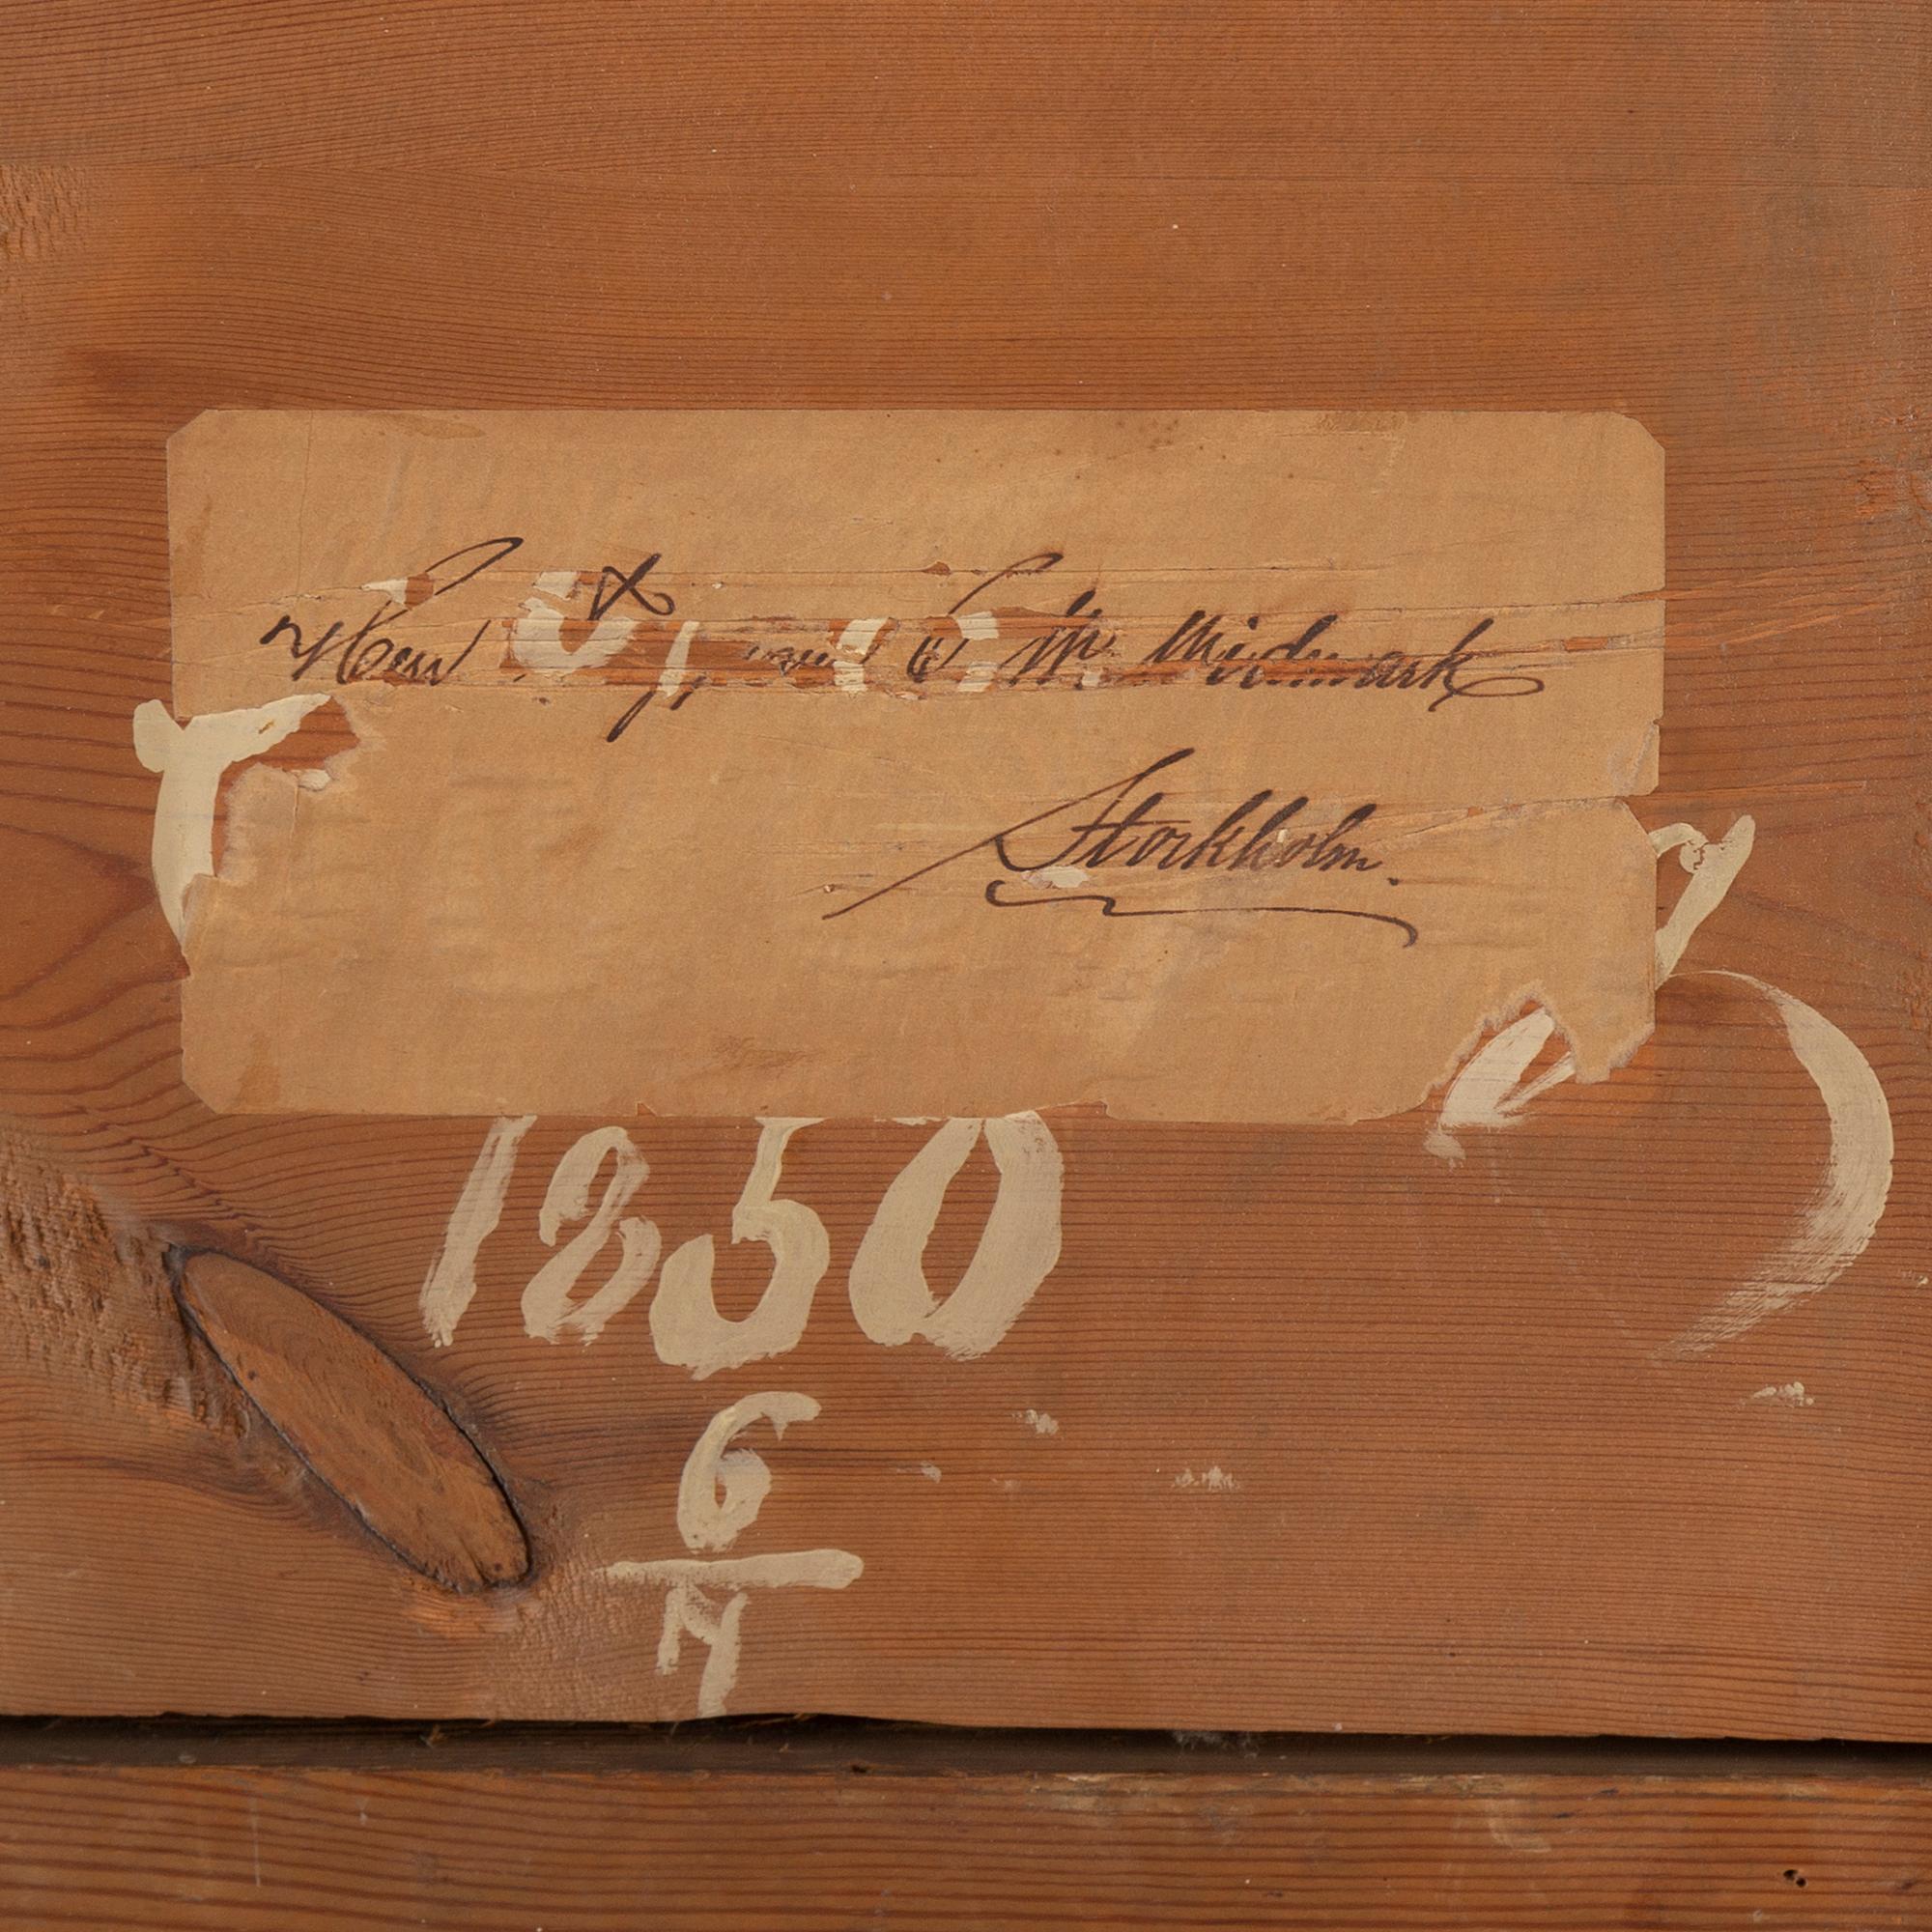 Herr
C. W. Widmark
Stockholm.
1850
6
4